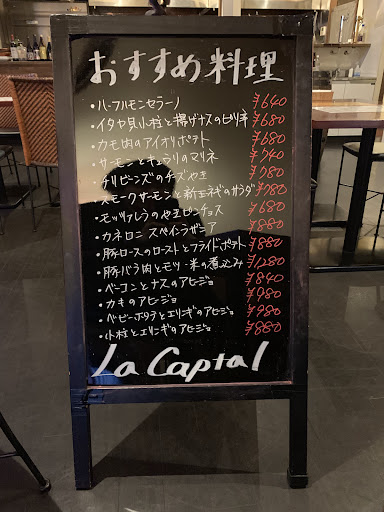 おすすめ料理
・ハーフハモンセラーノ ¥640
・イタヤ貝小柱と揚げナスのピリ辛 ¥680
・カモ肉のアイオリポテト ¥680
・サーモンとキュウリのマリネ ¥740
・チリビーンズのチーズやき ¥780
・スモークサーモンと新玉ネギのサラダ ¥780
・モッツァレラのやきピンチョス ¥680
・カネロニ スペインラザニア ¥880
・豚ロースのローストとフライドポテト ¥880
・豚バラ肉とモツ・米の煮込み ¥1280
・ベーコンとナスのアヒジョ ¥840
・カキのアヒジョ ¥980
・ベビーホタテとエリンギのアヒジョ ¥980
・小柱とエリンギのアヒジョ ¥880
La Captal